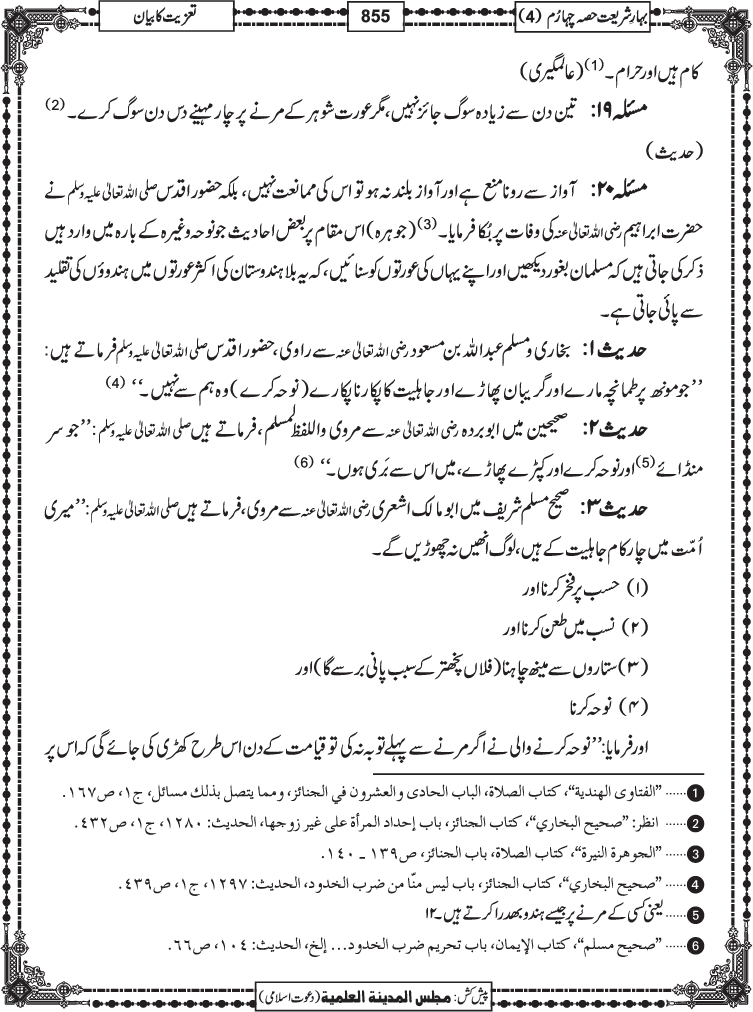 بہارِ شریعت حصہ چہارم (4)
855
تعزیت کا بیان
کام ہیں اور حرام۔(1) (عالمگیری)
مسئلہ ۱۹: تین دن سے زیادہ سوگ جائز نہیں، مگر عورت شوہر کے مرنے پر چار مہینے دس دن سوگ کرے۔(2)
(حدیث)
مسئلہ ۲۰: آواز سے رونا منع ہے اور آواز بلند نہ ہو تو اس کی ممانعت نہیں، بلکہ حضور اقدس صلی اللہ تعالیٰ علیہ وسلم نے
حضرت ابراہیم رضی اللہ تعالیٰ عنہ کی وفات پر بُکا فرمایا۔(3) (جوہرہ) اس مقام پر بعض احادیث جو نوحہ وغیرہ کے بارہ میں وارد ہیں
ذکر کی جاتی ہیں کہ مسلمان بغور دیکھیں اور اپنے یہاں کی عورتوں کو سنائیں، کہ یہ بلا ہندوستان کی اکثر عورتوں میں ہندوؤں کی تقلید
سے پائی جاتی ہے۔
حدیث ۱: بخاری و مسلم عبداللہ بن مسعود رضی اللہ تعالیٰ عنہ سے راوی، حضور اقدس صلی اللہ تعالیٰ علیہ وسلم فرماتے ہیں:
’’جو مونھ پر طمانچہ مارے اور گریبان پھاڑے اور جاہلیت کا پکارنا پکارے (نوحہ کرے) وہ ہم سے نہیں۔‘‘ (4)
حدیث ۲: صحیحین میں ابو بردہ رضی اللہ تعالیٰ عنہ سے مروی واللفظ لمسلم، فرماتے ہیں صلی اللہ تعالیٰ علیہ وسلم: ’’جو سر
منڈائے(5) اور نوحہ کرے اور کپڑے پھاڑے، میں اس سے بَری ہوں۔‘‘ (6)
حدیث ۳: صحیح مسلم شریف میں ابو مالک اشعری رضی اللہ تعالیٰ عنہ سے مروی، فرماتے ہیں صلی اللہ تعالیٰ علیہ وسلم: ’’میری
اُمّت میں چار کام جاہلیت کے ہیں، لوگ انھیں نہ چھوڑیں گے۔
(۱) حسب پر فخر کرنا اور
(۲) نسب میں طعن کرنا اور
(۳) ستاروں سے مینھ چاہنا (فلاں نچھتر کے سبب پانی برسے گا) اور
(۴) نوحہ کرنا
اور فرمایا: ’’نوحہ کرنے والی نے اگر مرنے سے پہلے توبہ نہ کی تو قیامت کے دن اس طرح کھڑی کی جائے گی کہ اس پر
1 ...... "الفتاوی الهندية"، كتاب الصلاة، الباب الحادى والعشرون في الجنائز، ومما يتصل بذلك مسائل، ج١، ص١٦٧.
2 ...... انظر: "صحيح البخاري"، كتاب الجنائز، باب إحداد المرأة على غير زوجها، الحديث: ١٢٨٠، ج١، ص٤٣٢.
3 ...... "الجوهرة النيرة"، كتاب الصلاة، باب الجنائز، ص١٣٩ ـ ١٤٠.
4 ...... "صحيح البخاري"، كتاب الجنائز، باب ليس منّا من ضرب الخدود، الحديث: ١٢٩٧، ج١، ص٤٣٩.
5 ...... یعنی کسی کے مرنے پر جیسے ہندو بھدرا کرتے ہیں۔۱۲
6 ...... "صحيح مسلم"، كتاب الإيمان، باب تحريم ضرب الخدود... إلخ، الحديث: ١٠٤، ص٦٦.
پیش کش: مجلس المدینة العلمیة (دعوت اسلامی)